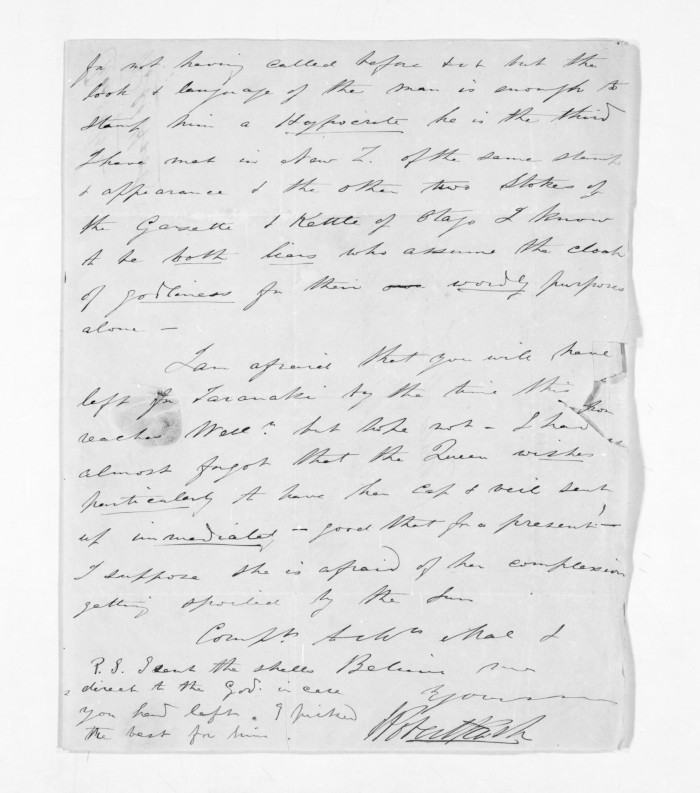 for not having called before &c &c but the
look & language of the man is enough to
stamp him a Hypocrite he is the third
I have met in New Z. of the same stamp
& appearance & the other two Stokes of
the Gazette & Kettle of Otago I know
to be both liars who assume the cloak
of godliness for their wordly purposes
alone -
I am afraid that you will have
left for Taranaki by the time this
reaches Well.n but hope not - I had
almost forgot that the Queen wishes
particularly to have her cap & veil sent
up immediately - good that for a present! -
I suppose she is afraid of her complexion
getting spoiled by the Sun
Compts to Mrs Mac &
Believe me
Yours
Robert Park
P.S. I sent the shells
direct to the Gov. in case
you had left. I picked
the best for him.